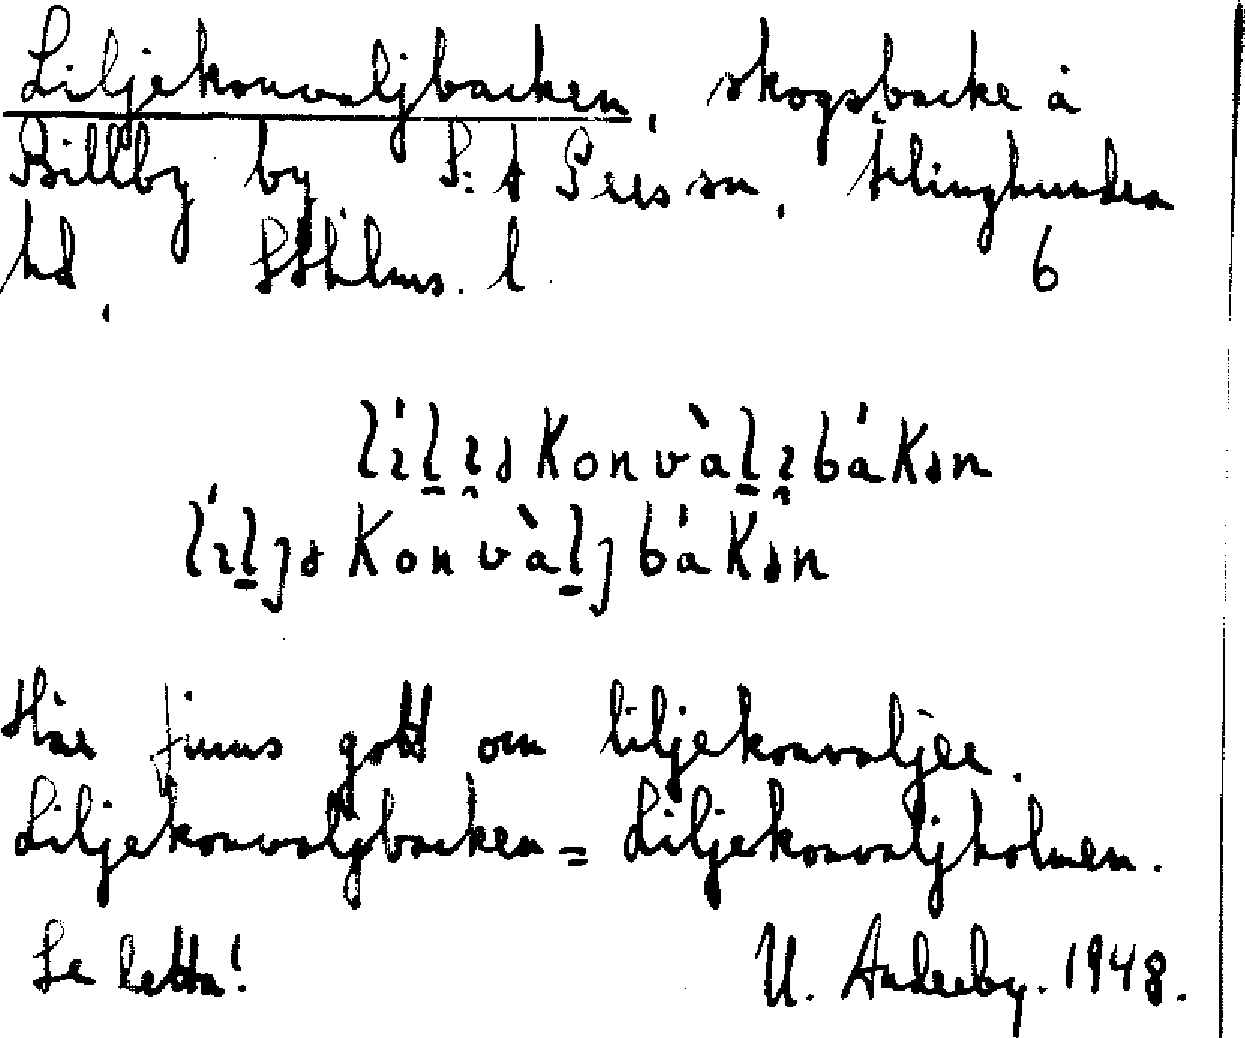 Liljekonvaljbacken, skogsbacke å
Billby by S:t Pers sn, Seminghundra
hd, Sthlms. l. 6
lílịəkonvàlịbákən
líljəkonvàljbákən
Här finns gott om liljekonvaljer.
Liljekonvaljbacken = Liljekonvaljholmen.
Se detta!
U. Anderby. 1948.